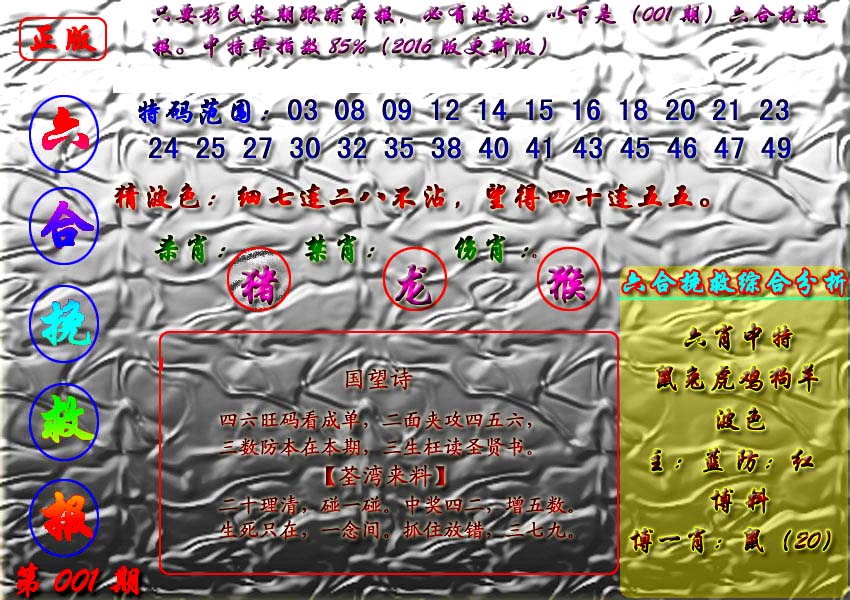 正版
只要彩民长期跟踪本报，必有收获。以下是（001期）六合挽救
报。中特率指数85%（2016版更新版）
六合挽救报
第001期
特码范围：03 08 09 12 14 15 16 18 20 21 23
24 25 27 30 32 35 38 40 41 43 45 46 47 49
猜波色：细七连二八不沾，望得四十连五五。
杀肖：猪 禁肖：龙 伤肖：猴。
国望诗
四六旺码看成单，二面夹攻四五六，
三数防本在本期，三生枉读圣贤书。
【荃湾来料】
二十理清，碰一碰。中奖四二，增五数。
生死只在，一念间。抓住放错，三七九。
六合挽救综合分析
六肖中特
鼠兔虎鸡狗羊
波色
主：蓝防：红
博料
博一肖：鼠（20）